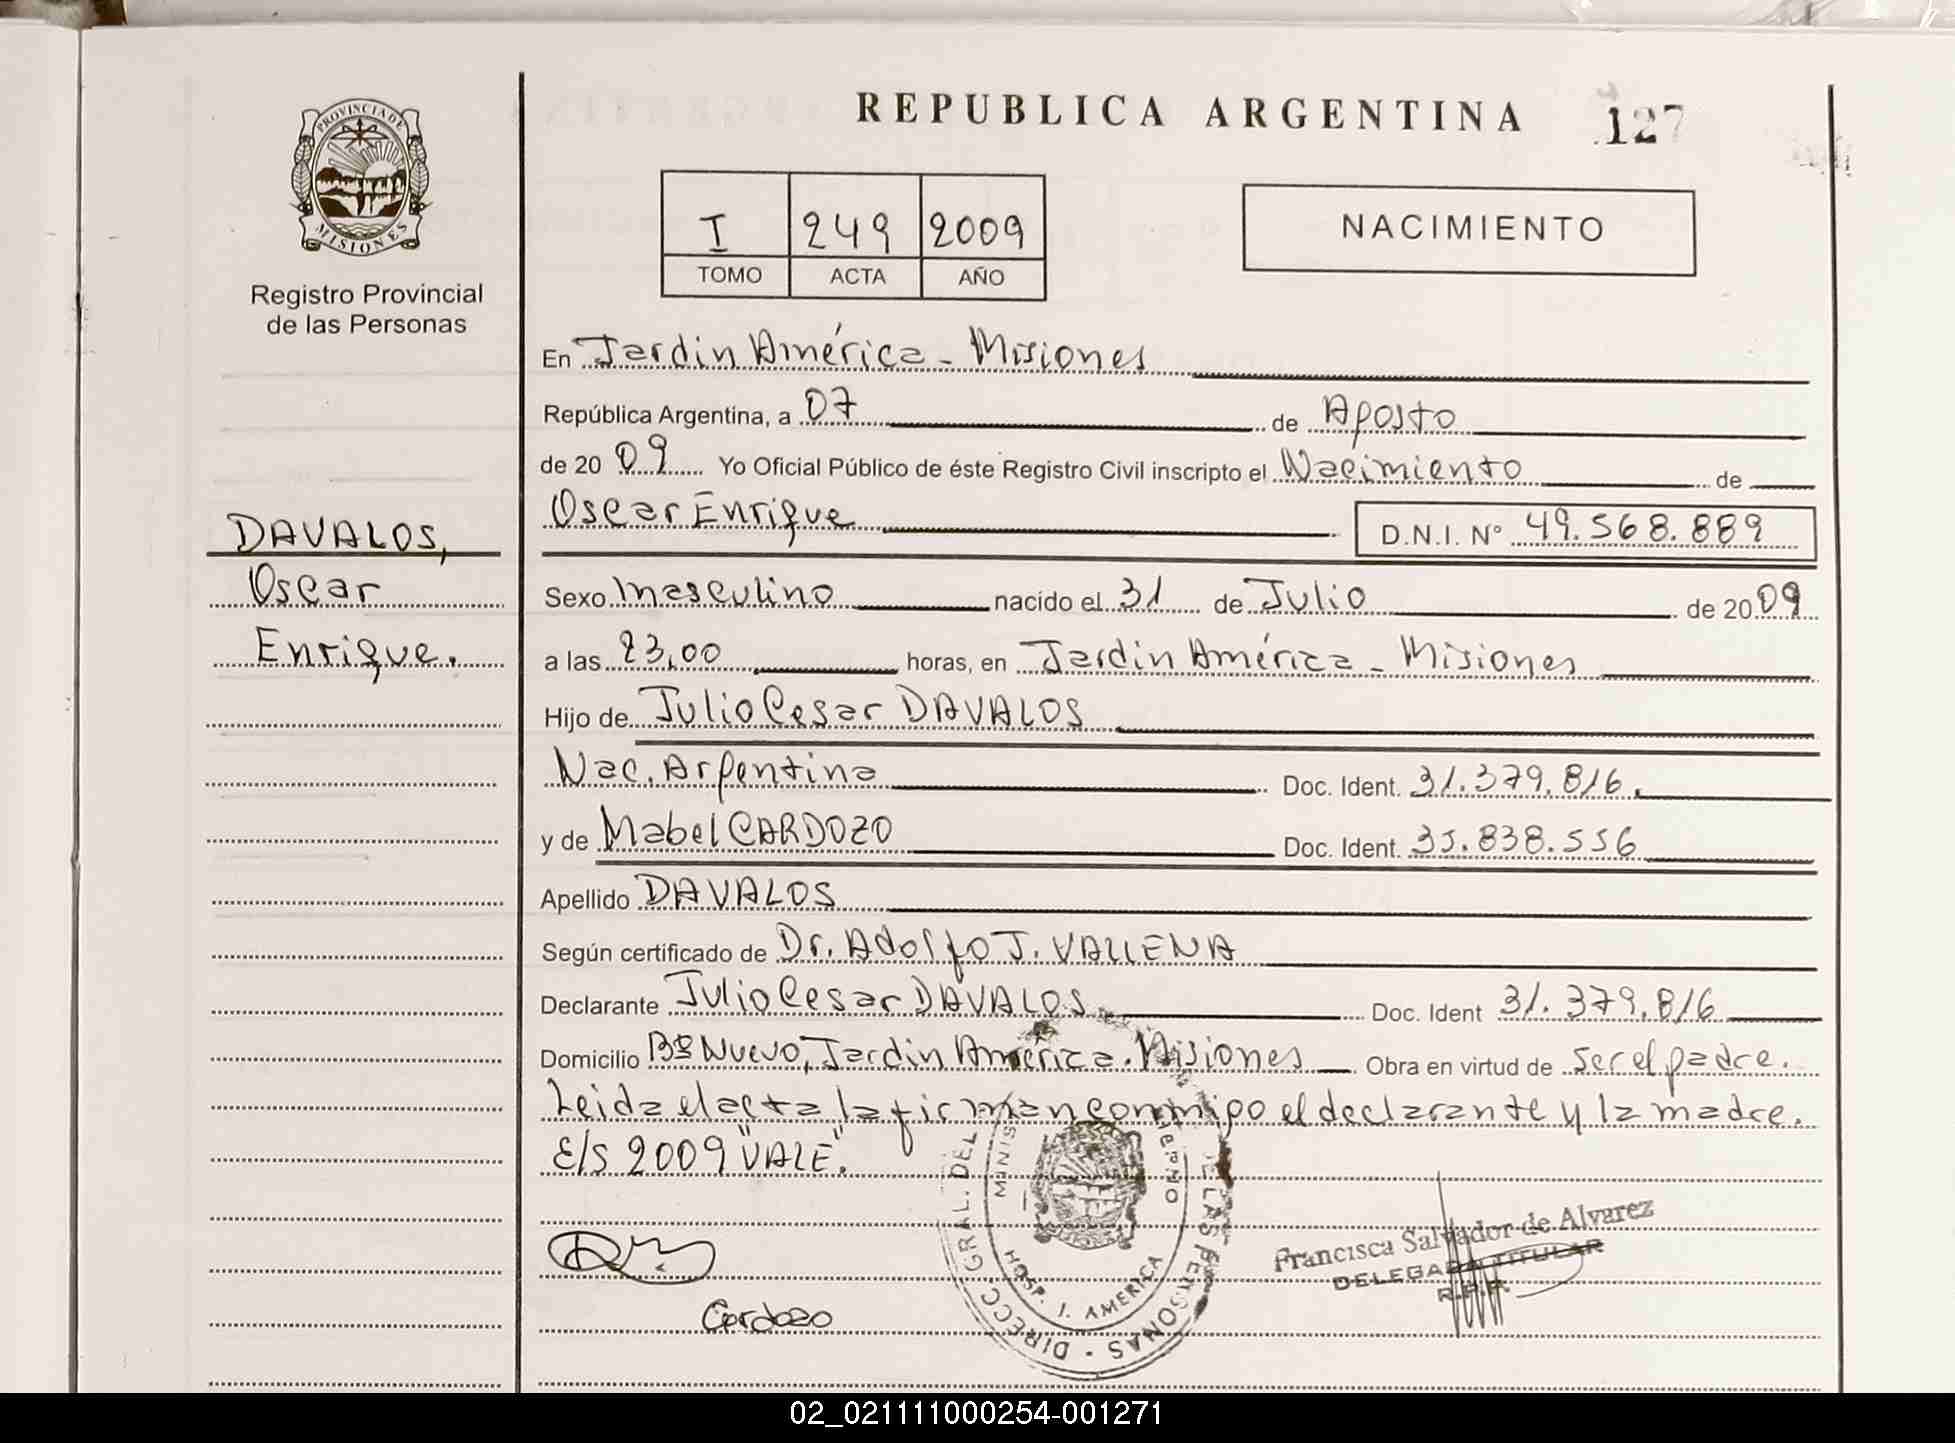 REPUBLICA ARGENTINA 127
PROVINCIA DE
MISIONES
Registro Provincial
de las Personas
I 249 2009
TOMO ACTA AÑO
NACIMIENTO
En Jardin América - Misiones
República Argentina, a 07 de Agosto
de 20 09 Yo Oficial Público de éste Registro Civil inscripto el Nacimiento de
Oscar Enrique D.N.I. Nº 49.568.889
DAVALOS,
Oscar
Enrique.
Sexo masculino nacido el 31 de Julio de 20 09
a las 23,00 horas, en Jardin América - Misiones
Hijo de Julio Cesar DAVALOS
Nac. Argentina Doc. Ident. 31.379.816.
y de Mabel CARDOZO Doc. Ident. 35.838.556
Apellido DAVALOS
Según certificado de Dr. Adolfo J. VALLENA
Declarante Julio Cesar DAVALOS Doc. Ident 31.379.816
Domicilio Bº Nuevo, Jardin América. Misiones Obra en virtud de ser el padre.
Leida el acta la firman conmigo el declarante y la madre.
E/S 2009 "VALE".
DIRECC. GRAL. DEL LAS PERSONAS
HOSP. J. AMERICA
Francisca Salvador de Alvarez
DELEGADA TITULAR
R.P.P.
Cardozo
02_021111000254-001271